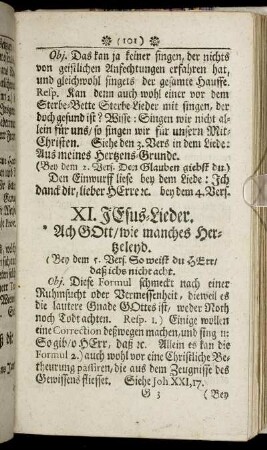 (101)
Obj. Das kan ja keiner singen, der nichts
von geistlichen Anfechtungen erfahren hat,
und gleichwohl singets der gesamte Hauffe.
Resp. Kan denn auch wohl einer vor dem
Sterbe-Bette Sterbe-Lieder mit singen, der
doch gesund ist? Wisse: Singen wir nicht al-
lein für uns/ so singen wir für unsern Mit-
Christen. Siehe den 3. Vers in dem Liede:
Aus meines Hertzens-Grunde.
(Bey dem 2. Vers. Den Glauben giebst du.)
Den Einwurff liese bey dem Liede: Ich
danck dir, lieber HErre ꝛc. bey dem 4. Vers.
XI. JEsus-Lieder.
* Ach GOtt/ wie manches Her-
tzeleyd.
(Bey dem 5. Vers. So weist du HErr/
daß ichs nicht acht.
Obj. Diese Formul schmeckt nach einer
Ruhmsucht oder Vermessenheit, dieweil es
die lautere Gnade GOttes ist, weder Noth
noch Tod achten. Resp. 1.) Einige wollen
eine Correction deßwegen machen, und sing n:
So gib/ o HErr, daß ꝛc. Allein es kan die
Formul 2.) auch wohl vor eine Christliche Be-
theurung passiren, die aus dem Zeugnisse des
Gewissens fliesset. Siehe Joh. XXI, 17.
G 3 (Bey